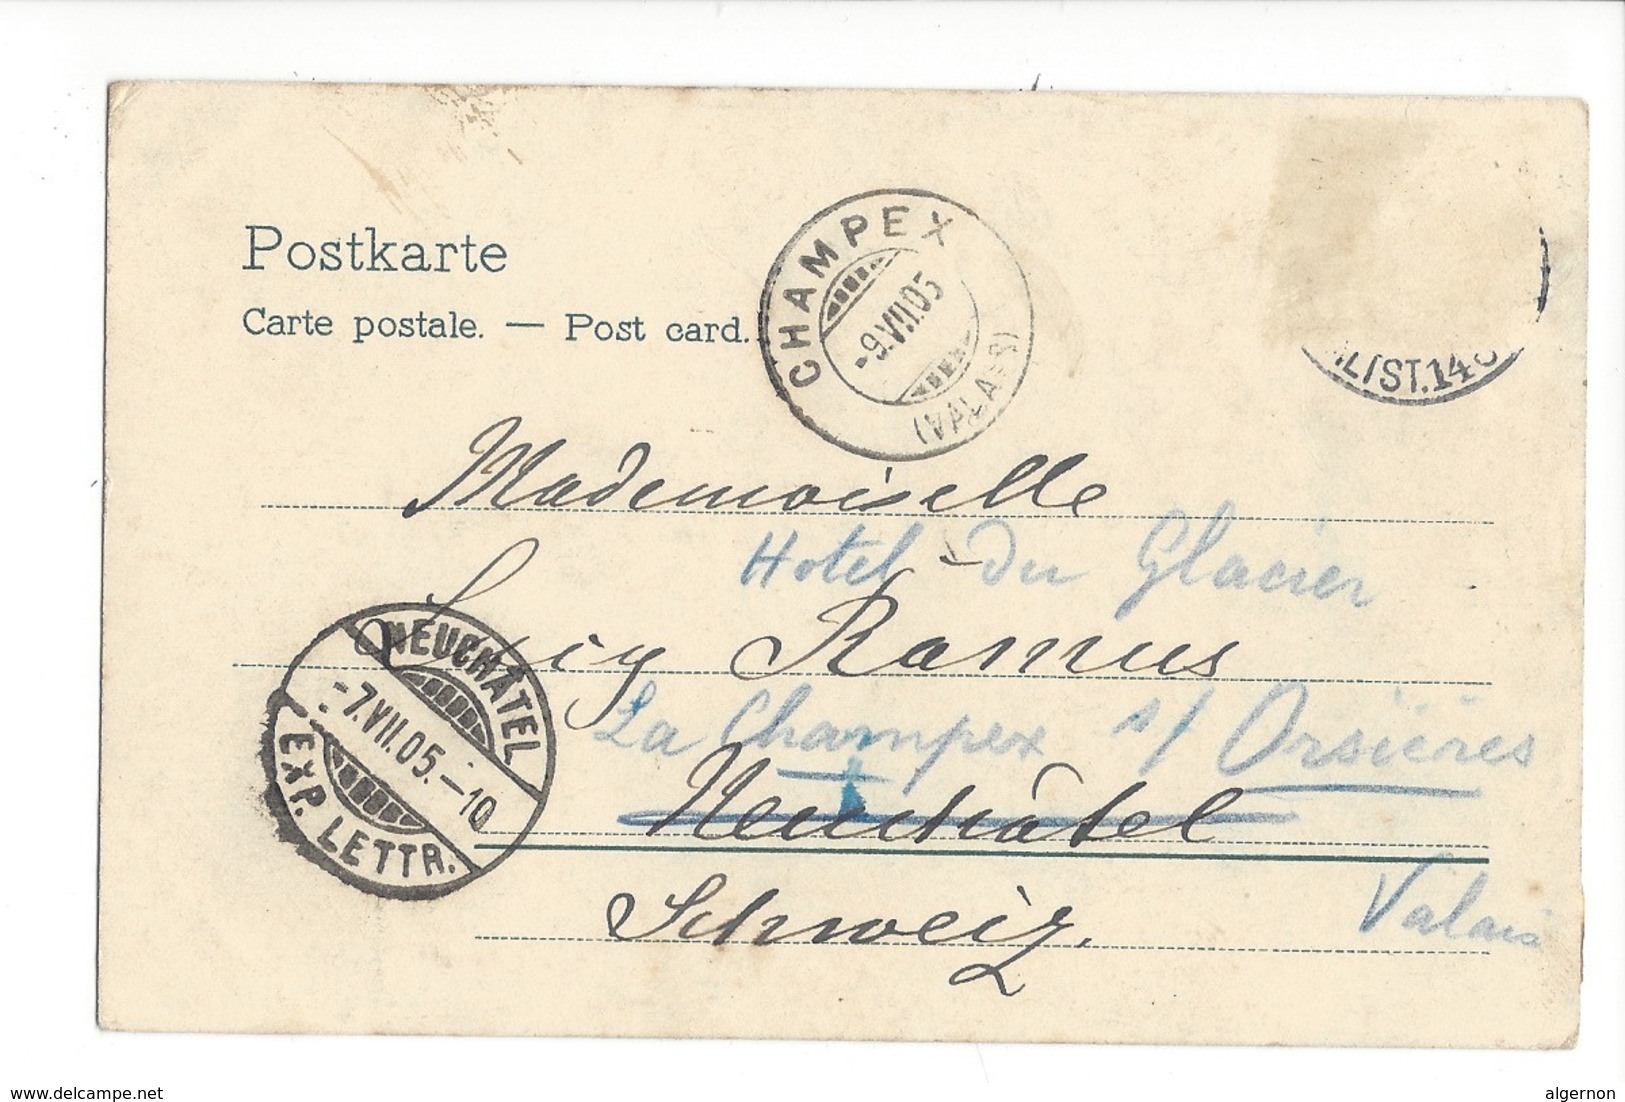 Postkarte
Carte postale. — Post card.
CHAMPEX
-9.VII.05
(VALAIS)
/ST.14
Mademoiselle
Hotel du Glacier
Lucy Ramus
La Champex s/ Orsières
Neuchâtel
Valais
Schweiz.
NEUCHÂTEL
-7.VII.05.-10
EXP. LETTR.
www.delcampe.net
algernon